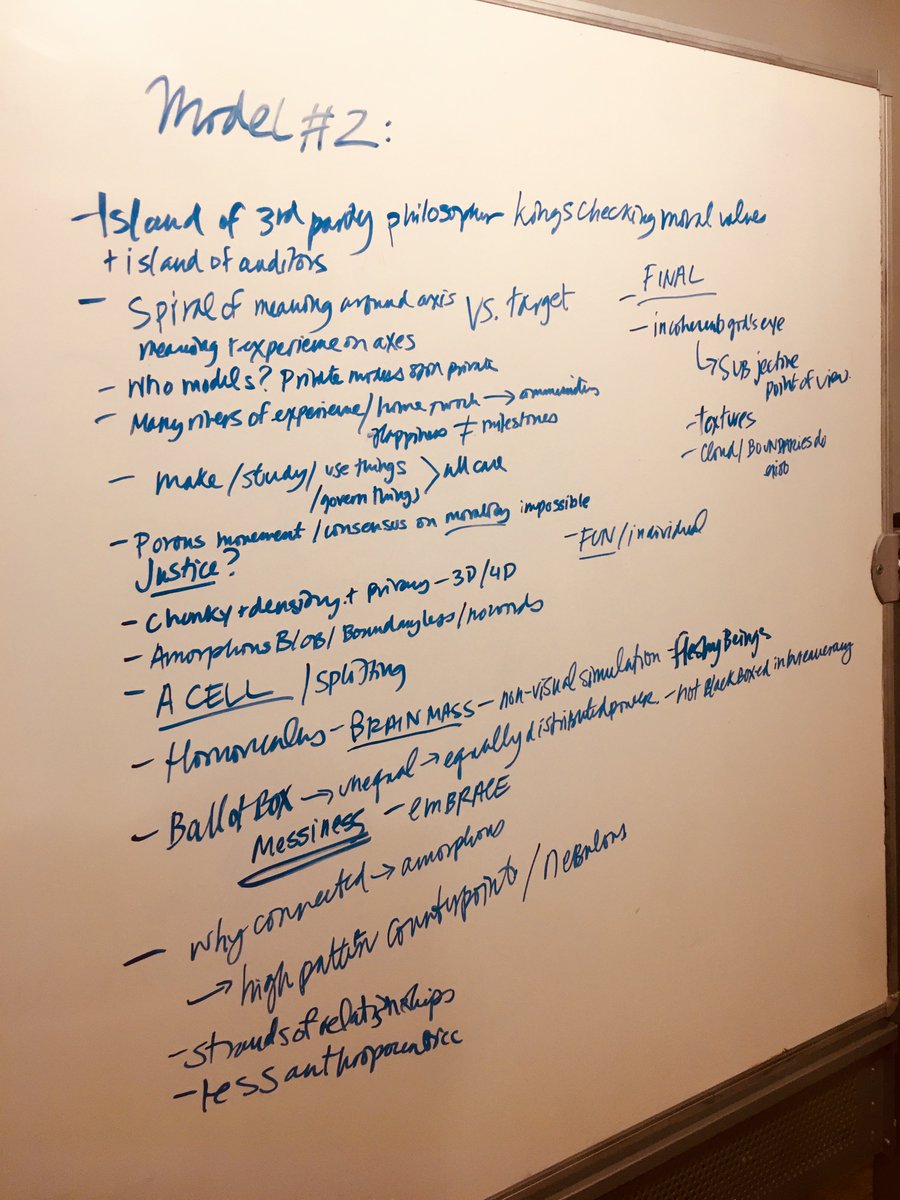 Model #2:
- Island of 3rd party philosopher kings checking moral values
+ island of auditors
- Spiral of meaning around axis vs. target
meaning + experience on axes
- Who models? Private models private
- Many rivers of experience / home + work → communities
Happiness ≠ milestones
- make / study / use things
/ govern things > all care
- Porous movement / consensus on morality impossible
Justice?
- Chunky + density + privacy - 3D/4D
- Amorphous BLOB / Boundaryless / no words
- A CELL / splitting
- Homonculus - BRAIN MASS - non-visual simulation - fleshy Beings
- Ballot Box → unequal → equally distributed power - not Black Boxed in bureaucracy
Messiness - EMBRACE
- why connected → amorphous
→ high pattern counterpoint / NEBULOUS
- strands of relationships
- less anthropocentric
- FINAL
- incoherent god's eye
↳ SUBjective
point of view.
- textures
- cloud / BOUNDARIES do
exist
- FUN / individual